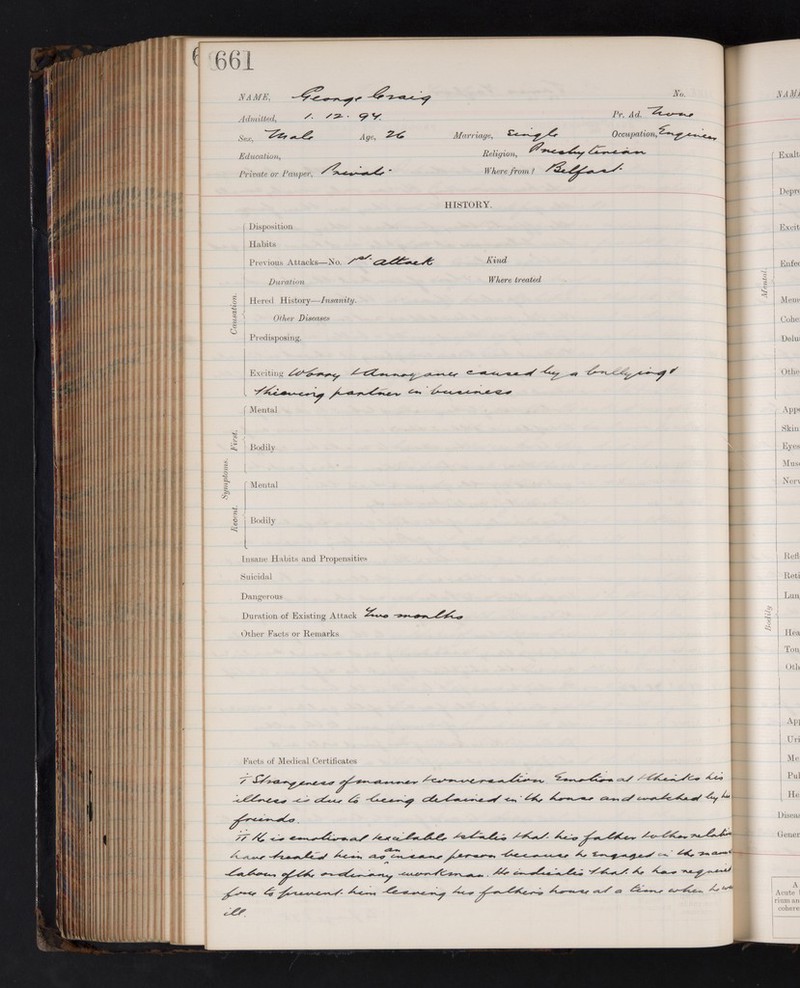 661
NAME, George Craig No.
Admitted, 1. 12. 94. Pr. Ad. None
Sex, Male Age, 26 Marriage, Single Occupation, Engineer
Education, Religion, Presbyterian
Private or Pauper, Private Where from? Belfast
HISTORY.
Disposition
Habits
Previous Attacks—No. 1st. attack Kind
Duration Where treated
Hered History—Insanity.
Other Diseases
Causation.
Predisposing.
Exciting Worry & Annoyance caused by a bullying &
thieving partner in business
Mental
First.
Bodily
Symptoms.
Mental
Recent.
Bodily
Insane Habits and Propensities
Suicidal
Dangerous
Duration of Existing Attack Two months
Other Facts or Remarks
Facts of Medical Certificates
I Strangeness of manner & conversation Emotional & thinks his
illness is due to being detained in the house and watched by his
friends.
II He is emotional & excitable & states that his father & other
have treated him as an insane person because he engaged in the
labour of the ordinary workman. He indicates that he has
force to prevent him leaving his father's house at a time when he
ill.
NAM
Exalt
Depre
Excit
Enfee
Mental.
Mem
Cohe
Delu
Othe
Appe
Skin
Eyes
Musc
Nerv
Refl
Reti
Lun
Bodily
Hea
Ton
Oth
App
Uri
Me
Pul
He
Disea
Gener
A
Acute
rium an
cohere